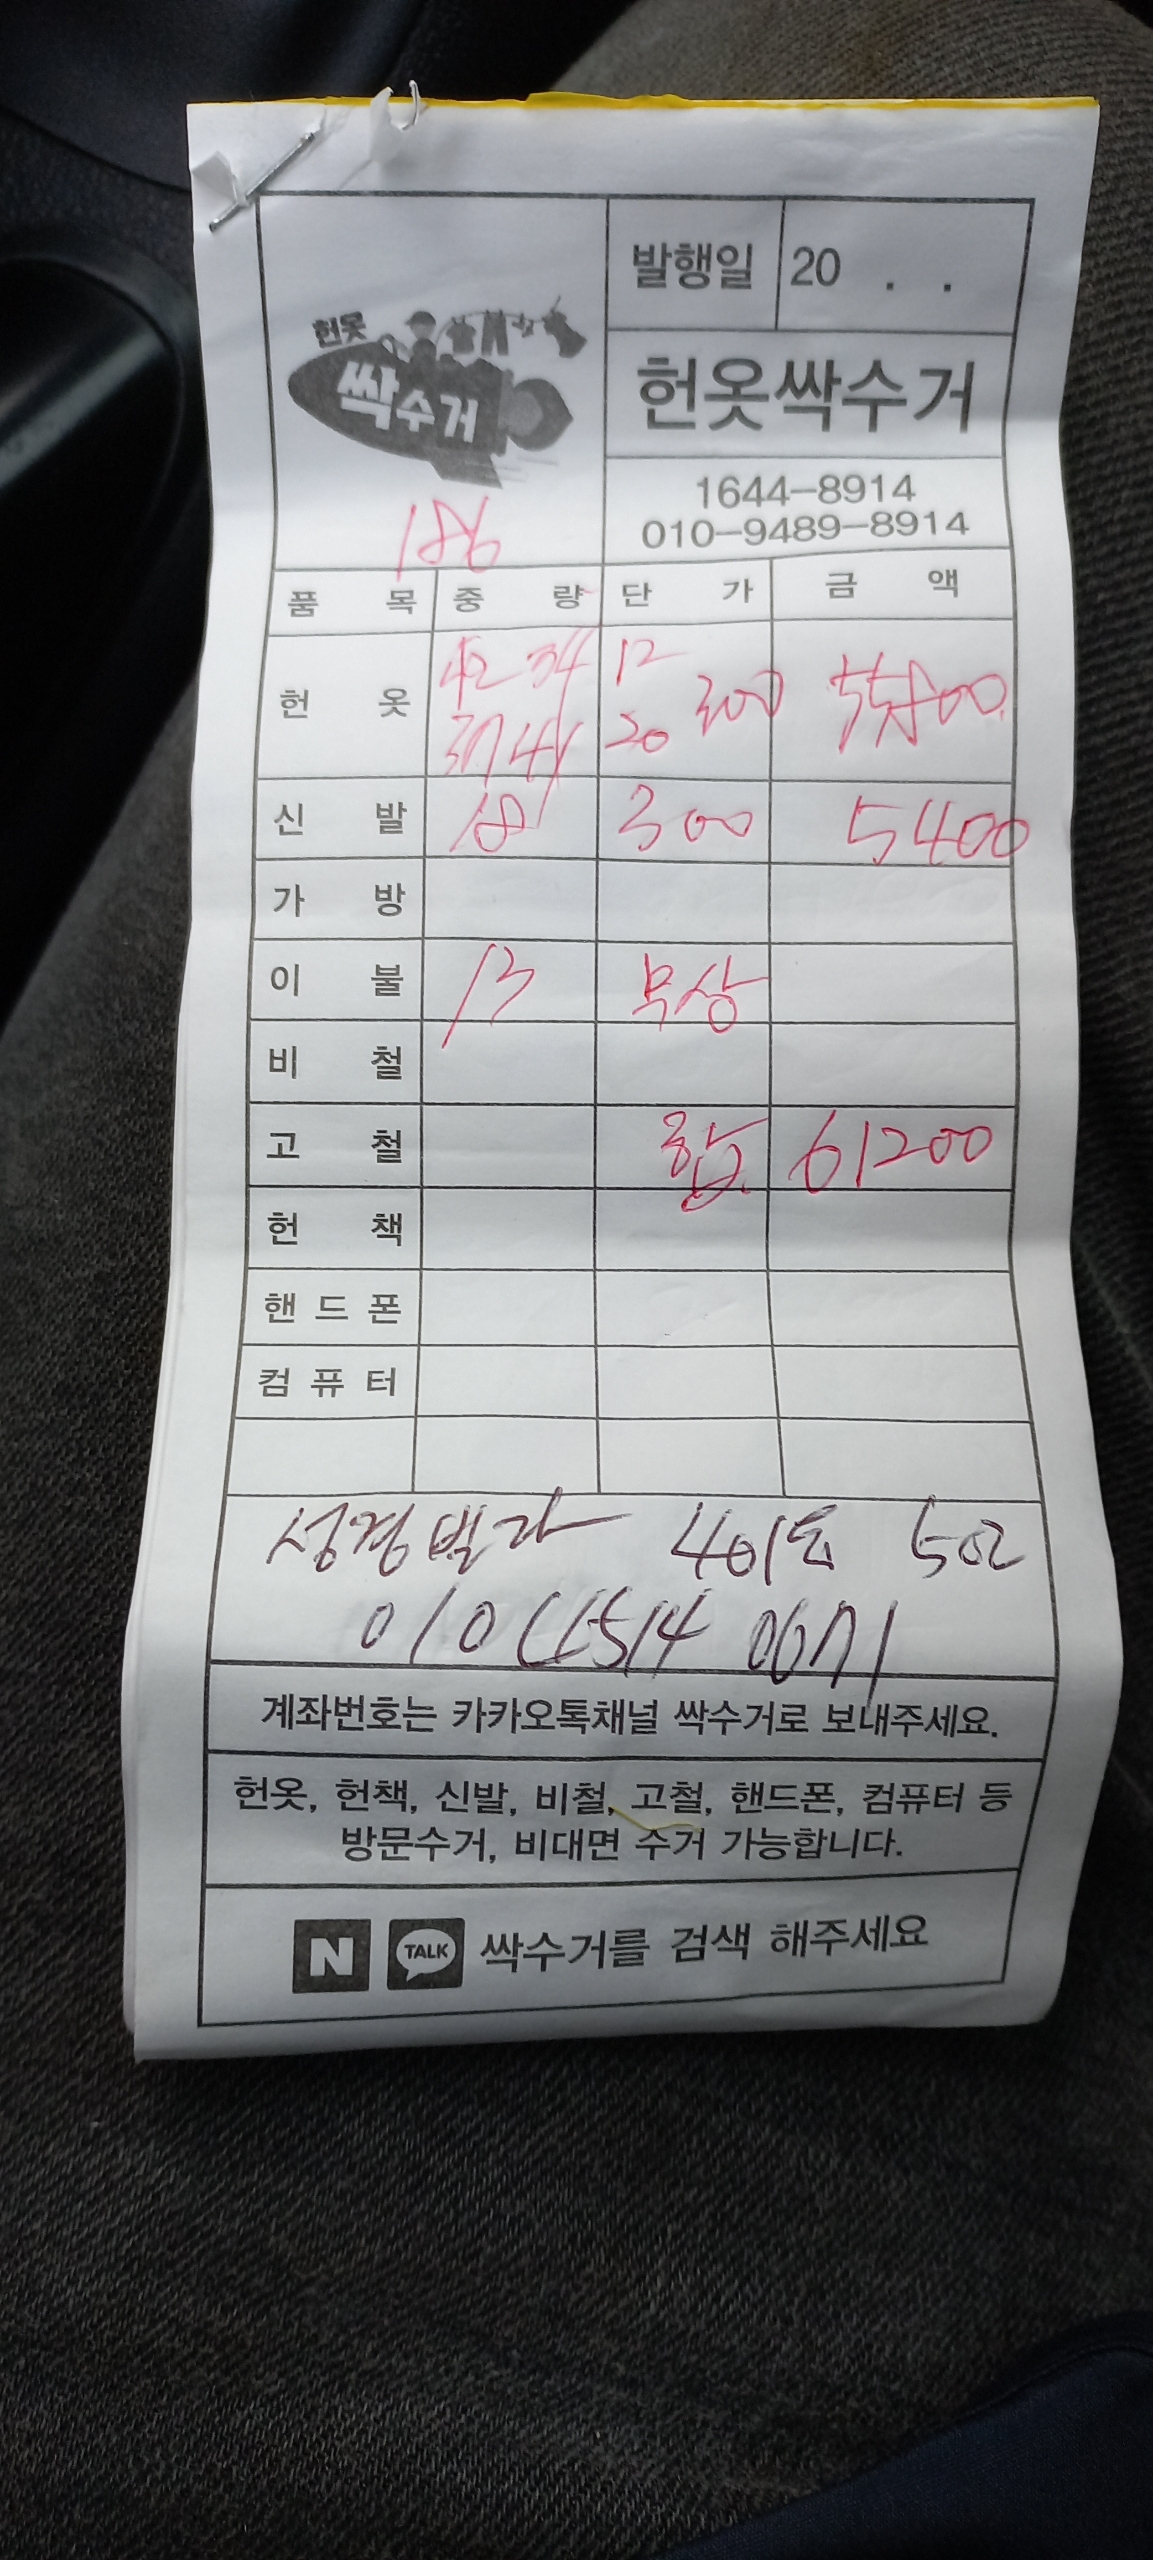 발행일 20 . .
헌옷
싹수거
헌옷싹수거
1644-8914
010-9489-8914
186
품목 중량 단가 금액
헌옷 42 34 12 300 55800
37 41 20
신발 18 300 5400
가방
이불 13 무상
비철
고철 합 61200
헌책
핸드폰
컴퓨터
성경빌라 401호
010 0671
계좌번호는 카카오톡채널 싹수거로 보내주세요.
헌옷, 헌책, 신발, 비철, 고철, 핸드폰, 컴퓨터 등
방문수거, 비대면 수거 가능합니다.
N TALK 싹수거를 검색 해주세요